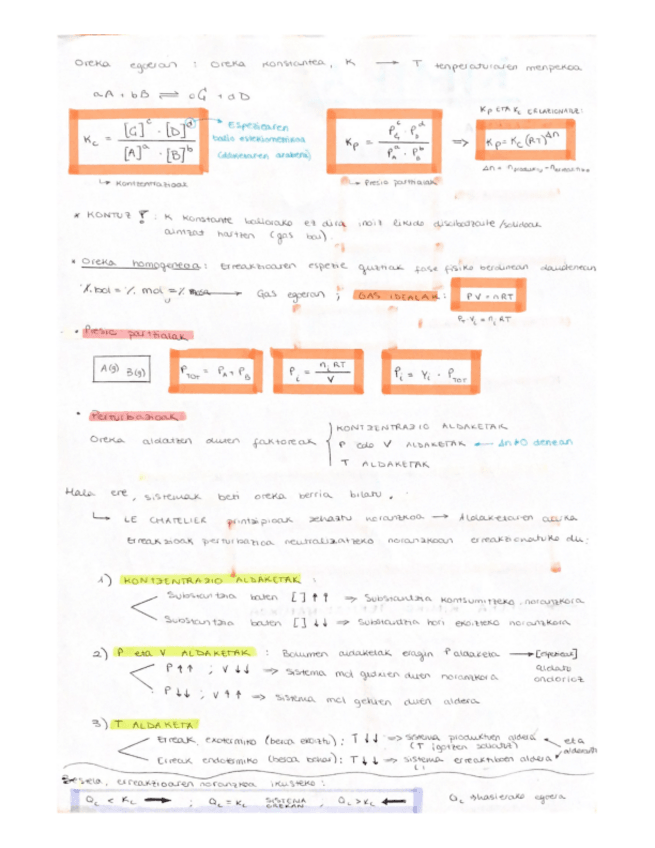 Oreka egoeran : Oreka konstantea, K → T tenperaturaren menpekoa
aA + bB ⇌ cG + dD
Kp ETA Kc ERLAZIONATUZ:
Kc = [G]^c · [D]^d / [A]^a · [B]^b
Espeziearen
balio estekiometrikoa
Kp = P_G^c · P_D^d / P_A^a · P_B^b ⇒ Kp = Kc (RT)^Δn
↳ Kontzentrazioak
↳ Presio partzialak
* KONTUZ ! : K konstante baliorako ez dira inoiz likido /solidoak
aintzat hartzen (gas bai).
• Oreka homogeneoa : Erreakzioaren espezie guztiak fase fisiko berdinean daudenean
% bol = % mol → Gas egoeran ; GAS IDEALAK : PV = nRT
• Presio partzialak
A(g) B(g)
P_TOT = P_A + P_B
P_i = n_i RT / V
P_i = Y_i · P_TOT
• Perturbazioak
Oreka aldatzen duten faktoreak
KONTZENTRAZIO ALDAKETAK
P edo V ALDAKETAK ← Δn≠0 denean
T ALDAKETAK
Hala ere, sistemak beti oreka berria bilatu.
↳ LE CHATELIER printzipioak zehaztu noranzkoa → Aldaketaren aurka
Erreakzioak perturbazioa neutralizatzeko noranzkoan erreakzionatuko du:
1) KONTZENTRAZIO ALDAKETAK :
Substantzia baten [ ] ↑↑ ⇒ Substantzia kontsumitzeko noranzkora
Substantzia baten [ ] ↓↓ ⇒ Substantzia hori ekoizteko noranzkora
2) P eta V ALDAKETAK : Bolumen aldaketak eragin P aldaketa →
aldatu
ondorioz
P ↑↑ ; V ↓↓ ⇒ Sistema mol gutxien duen noranzkora
P ↓↓ ; V ↑↑ ⇒ Sistema mol gehien duen aldera
3) T ALDAKETA
Erreak. exotermiko (beroa ekoiztu) : T ↓↓ ⇒ sistema produktuen aldera
eta
Erreak endotermiko (beroa behar) : T ↓↓ ⇒ sistema erreaktiboen aldera
Bestela, erreakzioaren noranzkoa ikusteko :
Qc < Kc → ; Qc = Kc SISTEMA OREKAN , Qc > Kc ←
Qc ⇒hasierako egoera